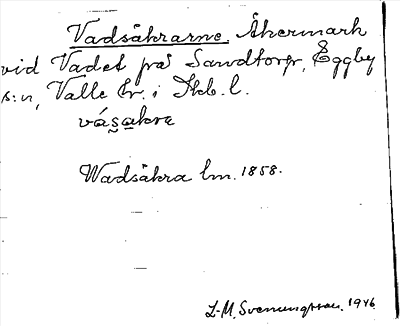 Vadsåkrarne, Åkermark
vid Vadet på Sandtorp, Eggby
s:n, Valle hr. i Skb. l.
våsakra
Wadsåkra lm. 1858.
L-M. Svenungsson. 1946